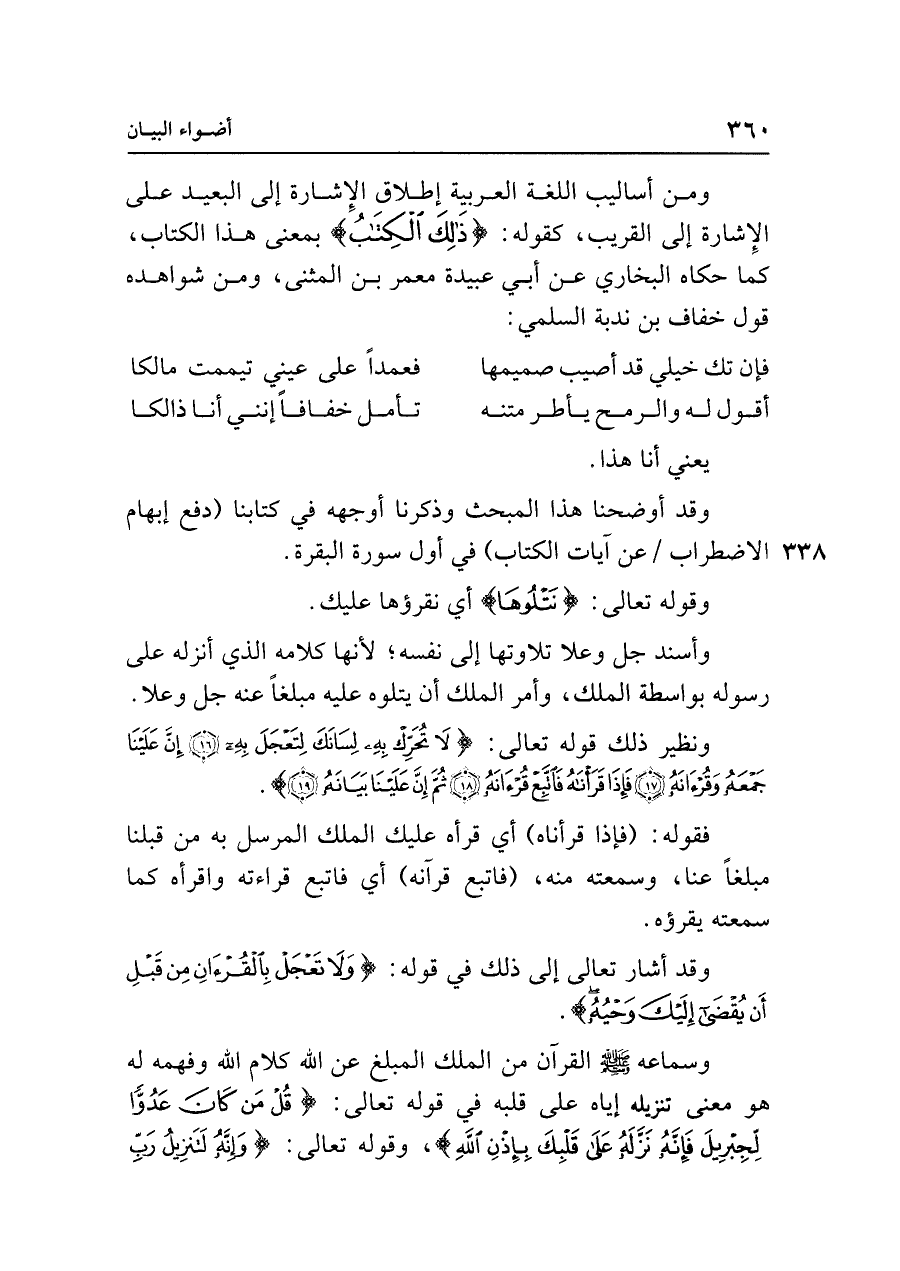 ٣٦٠ أضـواء البيـان
ومـن أساليب اللغـة العـربية إطـلاق الإشـارة إلى البعيـد علـى
الإشارة إلى القريب، كقوله: ﴿ذَٰلِكَ ٱلْكِتَٰبُ﴾ بمعنى هـذا الكتاب،
كما حكاه البخاري عـن أبـي عبيدة معمر بـن المثنى، ومـن شواهـده
قول خفاف بن ندبة السلمي:
فإن تك خيلي قد أصيب صميمها فعمداً على عيني تيممت مالكا
أقـول لـه والـرمـح يـأطـر متنـه تـأمـل خفـافـاً إننـي أنـا ذالكـا
يعني أنا هذا.
وقد أوضحنا هذا المبحث وذكرنا أوجهه في كتابنا (دفع إبهام
٣٣٨ الاضطراب / عن آيات الكتاب) في أول سورة البقرة.
وقوله تعالى: ﴿نَتْلُوهَا﴾ أي نقرؤها عليك.
وأسند جل وعلا تلاوتها إلى نفسه؛ لأنها كلامه الذي أنزله على
رسوله بواسطة الملك، وأمر الملك أن يتلوه عليه مبلغاً عنه جل وعلا.
ونظير ذلك قوله تعالى: ﴿لَا تُحَرِّكْ بِهِۦ لِسَانَكَ لِتَعْجَلَ بِهِۦٓ ۝١٦ إِنَّ عَلَيْنَا
جَمْعَهُۥ وَقُرْءَانَهُۥ ۝١٧ فَإِذَا قَرَأْنَٰهُ فَٱتَّبِعْ قُرْءَانَهُۥ ۝١٨ ثُمَّ إِنَّ عَلَيْنَا بَيَانَهُۥ ۝١٩﴾.
فقوله: (فإذا قرأناه) أي قرأه عليك الملك المرسل به من قبلنا
مبلغاً عنا، وسمعته منه، (فاتبع قرآنه) أي فاتبع قراءته واقرأه كما
سمعته يقرؤه.
وقد أشار تعالى إلى ذلك في قوله: ﴿وَلَا تَعْجَلْ بِٱلْقُرْءَانِ مِن قَبْلِ
أَن يُقْضَىٰٓ إِلَيْكَ وَحْيُهُۥۖ﴾.
وسماعه ﷺ القرآن من الملك المبلغ عن الله كلام الله وفهمه له
هو معنى تنزيله إياه على قلبه في قوله تعالى: ﴿قُلْ مَن كَانَ عَدُوًّا
لِّجِبْرِيلَ فَإِنَّهُۥ نَزَّلَهُۥ عَلَىٰ قَلْبِكَ بِإِذْنِ ٱللَّهِ﴾، وقوله تعالى: ﴿وَإِنَّهُۥ لَتَنزِيلُ رَبِّ